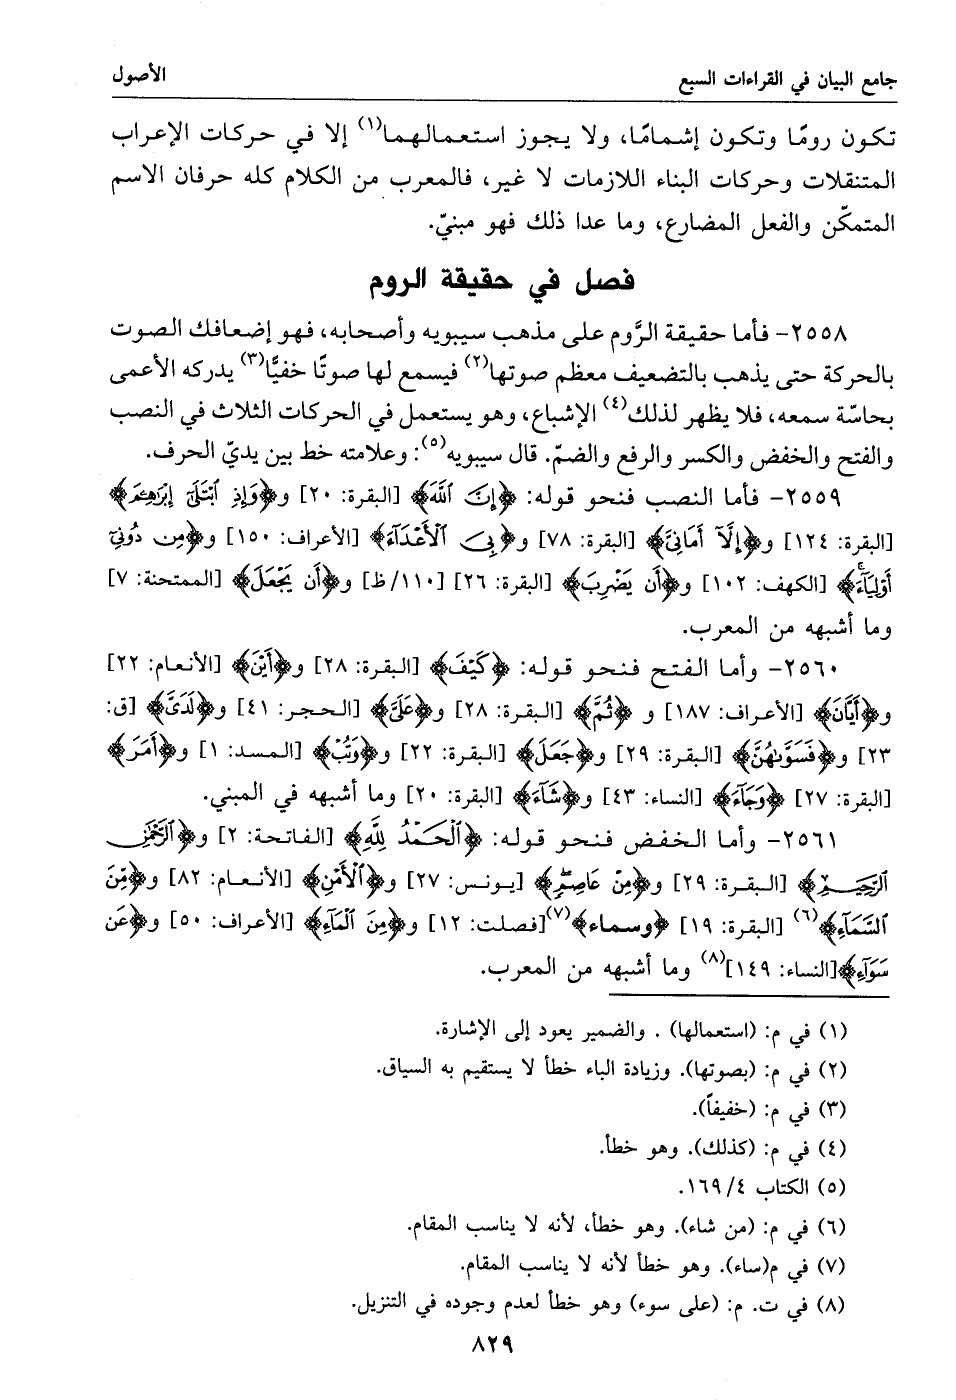 جامع البيان في القراءات السبع الأصول
تكون رومًا وتكون إشمامًا، ولا يجوز استعمالهما(١) إلا في حركات الإعراب
المتنقلات وحركات البناء اللازمات لا غير، فالمعرب من الكلام كله حرفان الاسم
المتمكّن والفعل المضارع، وما عدا ذلك فهو مبنيّ.
فصل في حقيقة الروم
٢٥٥٨- فأما حقيقة الرَّوم على مذهب سيبويه وأصحابه، فهو إضعافك الصوت
بالحركة حتى يذهب بالتضعيف معظم صوتها(٢) فيسمع لها صوتًا خفيًّا(٣) يدركه الأعمى
بحاسّة سمعه، فلا يظهر لذلك(٤) الإشباع، وهو يستعمل في الحركات الثلاث في النصب
والفتح والخفض والكسر والرفع والضمّ. قال سيبويه(٥): وعلامته خط بين يديّ الحرف.
٢٥٥٩- فأما النصب فنحو قوله: ﴿إِنَّ ٱللَّهَ﴾ [البقرة: ٢٠] و﴿وَإِذِ ٱبْتَلَىٰٓ إِبْرَٰهِـۧمَ﴾
[البقرة: ١٢٤] و﴿إِلَّآ أَمَانِىَّ﴾ [البقرة: ٧٨] و﴿بِىَ ٱلْأَعْدَآءَ﴾ [الأعراف: ١٥٠] و﴿مِن دُونِىٓ
أَوْلِيَآءَ﴾ [الكهف: ١٠٢] و﴿أَن يَضْرِبَ﴾ [البقرة: ٢٦] [١١٠/ظ] و﴿أَن يَجْعَلَ﴾ [الممتحنة: ٧]
وما أشبهه من المعرب.
٢٥٦٠- وأما الفتح فنحو قوله: ﴿كَيْفَ﴾ [البقرة: ٢٨] و﴿أَيْنَ﴾ [الأنعام: ٢٢]
و﴿أَيَّانَ﴾ [الأعراف: ١٨٧] و ﴿ثُمَّ﴾ [البقرة: ٢٨] و﴿عَلَىَّ﴾ [الحجر: ٤١] و﴿لَدَىَّ﴾ [ق:
٢٣] و﴿فَسَوَّىٰهُنَّ﴾ [البقرة: ٢٩] و﴿جَعَلَ﴾ [البقرة: ٢٢] و﴿وَتَبَّ﴾ [المسد: ١] و﴿أَمَرَ﴾
[البقرة: ٢٧] ﴿وَجَآءَ﴾ [النساء: ٤٣] و﴿شَآءَ﴾ [البقرة: ٢٠] وما أشبهه في المبني.
٢٥٦١- وأما الخفض فنحو قوله: ﴿ٱلْحَمْدُ لِلَّهِ﴾ [الفاتحة: ٢] و﴿ٱلرَّحْمَٰنِ
ٱلرَّحِيمِ﴾ [البقرة: ٢٩] و﴿مِنْ عَاصِمٍ﴾ [يونس: ٢٧] و﴿ٱلْأَمْنِ﴾ [الأنعام: ٨٢] و﴿مِّنَ
ٱلسَّمَآءِ﴾(٦) [البقرة: ١٩] ﴿وسماء﴾(٧)[فصلت: ١٢] و﴿مِنَ ٱلْمَآءِ﴾ [الأعراف: ٥٠] و﴿عَن
سُوٓءٍ﴾[النساء: ١٤٩](٨) وما أشبهه من المعرب.
(١) في م: (استعمالها) . والضمير يعود إلى الإشارة.
(٢) في م: (بصوتها). وزيادة الباء خطأ لا يستقيم به السياق.
(٣) في م: (خفيفاً).
(٤) في م: (كذلك). وهو خطأ.
(٥) الكتاب ٤/١٦٩.
(٦) في م: (من شاء). وهو خطأ، لأنه لا يناسب المقام.
(٧) في م(ساء). وهو خطأ لأنه لا يناسب المقام.
(٨) في ت. م: (على سوء) وهو خطأ لعدم وجوده في التنزيل.
٨٢٩